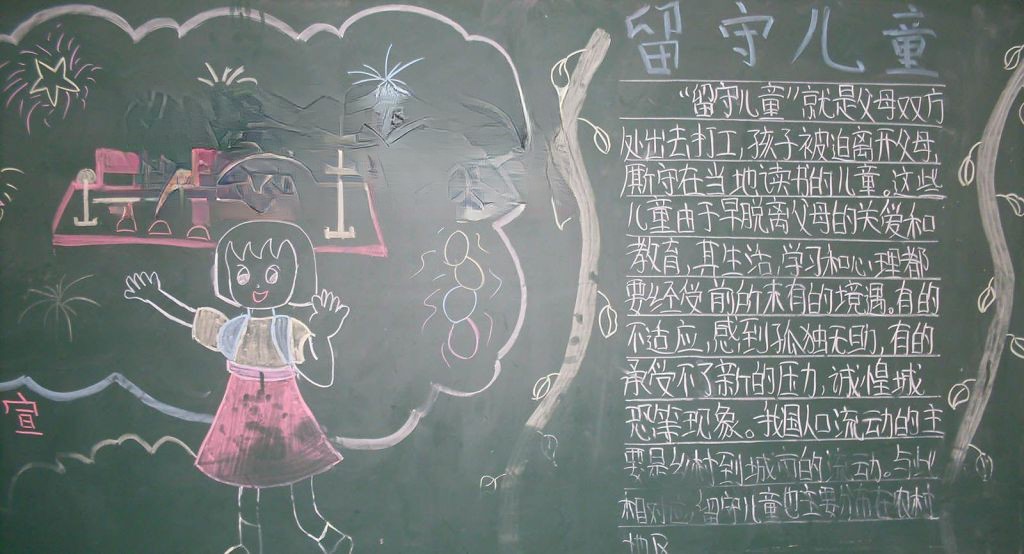 留守儿童
“留守儿童”就是父母双方
外出去打工,孩子被迫离开父母,
厮守在当地读书的儿童。这些
儿童由于早脱离父母的关爱和
教育,其生活,学习和心理都
要经受前的未有的境遇。有的
不适应,感到孤独无助,有的
承受不了新的压力,诚惶城
恐等现象。我国人口流动的主
要是乡村到城市的流动。与此
相对应,留守儿童也主要分布在农村
地区
宣